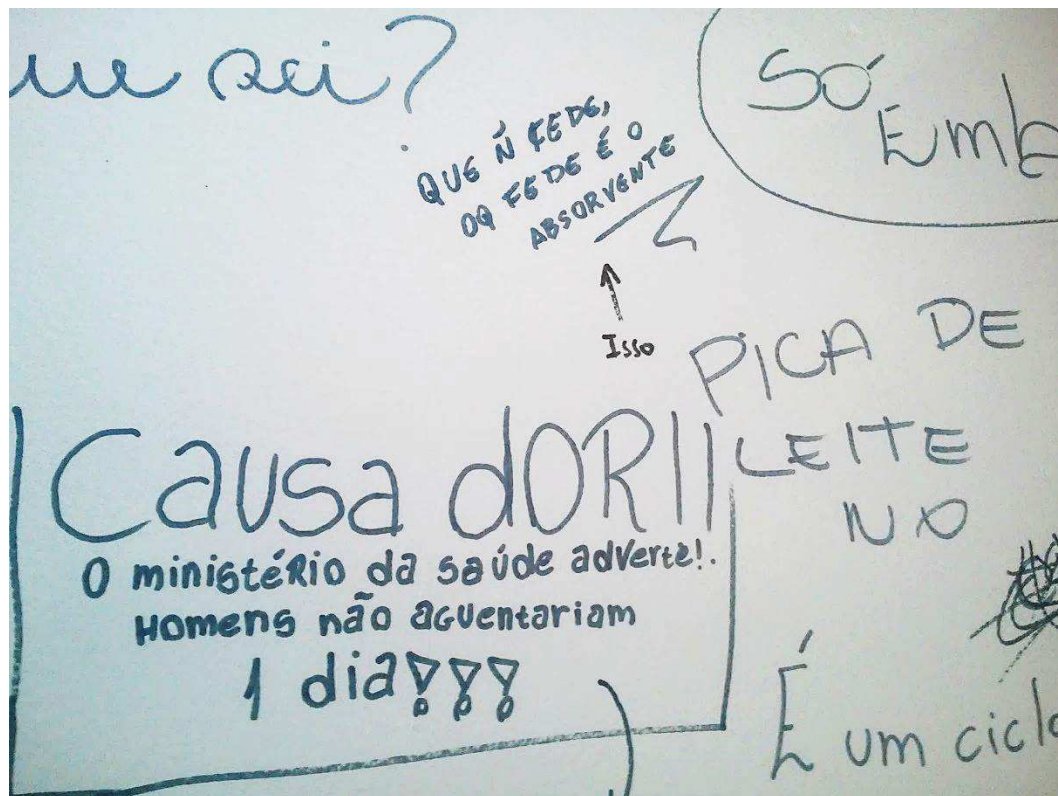 ue sei?
QUE Ñ FEDE,
OQ FEDE É O
ABSORVENTE
Só
Emb
↑
Isso
PICA DE
LEITE
NO
Causa dOR!!
O ministéRio da saúde adverte!.
Homens não aguentariam
1 dia!!!
É um ciclo